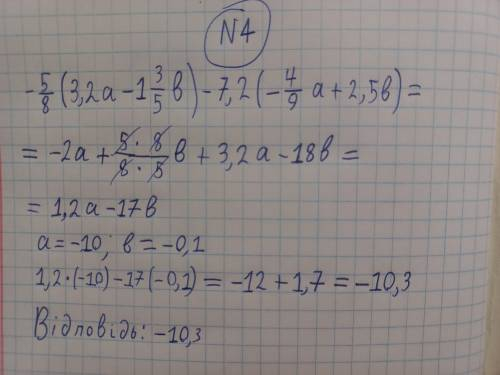 N4
-5/8 (3,2a - 1 3/5 в) - 7,2 (-4/9 a + 2,5в) =
= -2a + (5·8)/(8·5) в + 3,2a - 18в =
= 1,2a - 17в
a = -10; в = -0,1
1,2·(-10) - 17(-0,1) = -12 + 1,7 = -10,3
Відповідь: -10,3